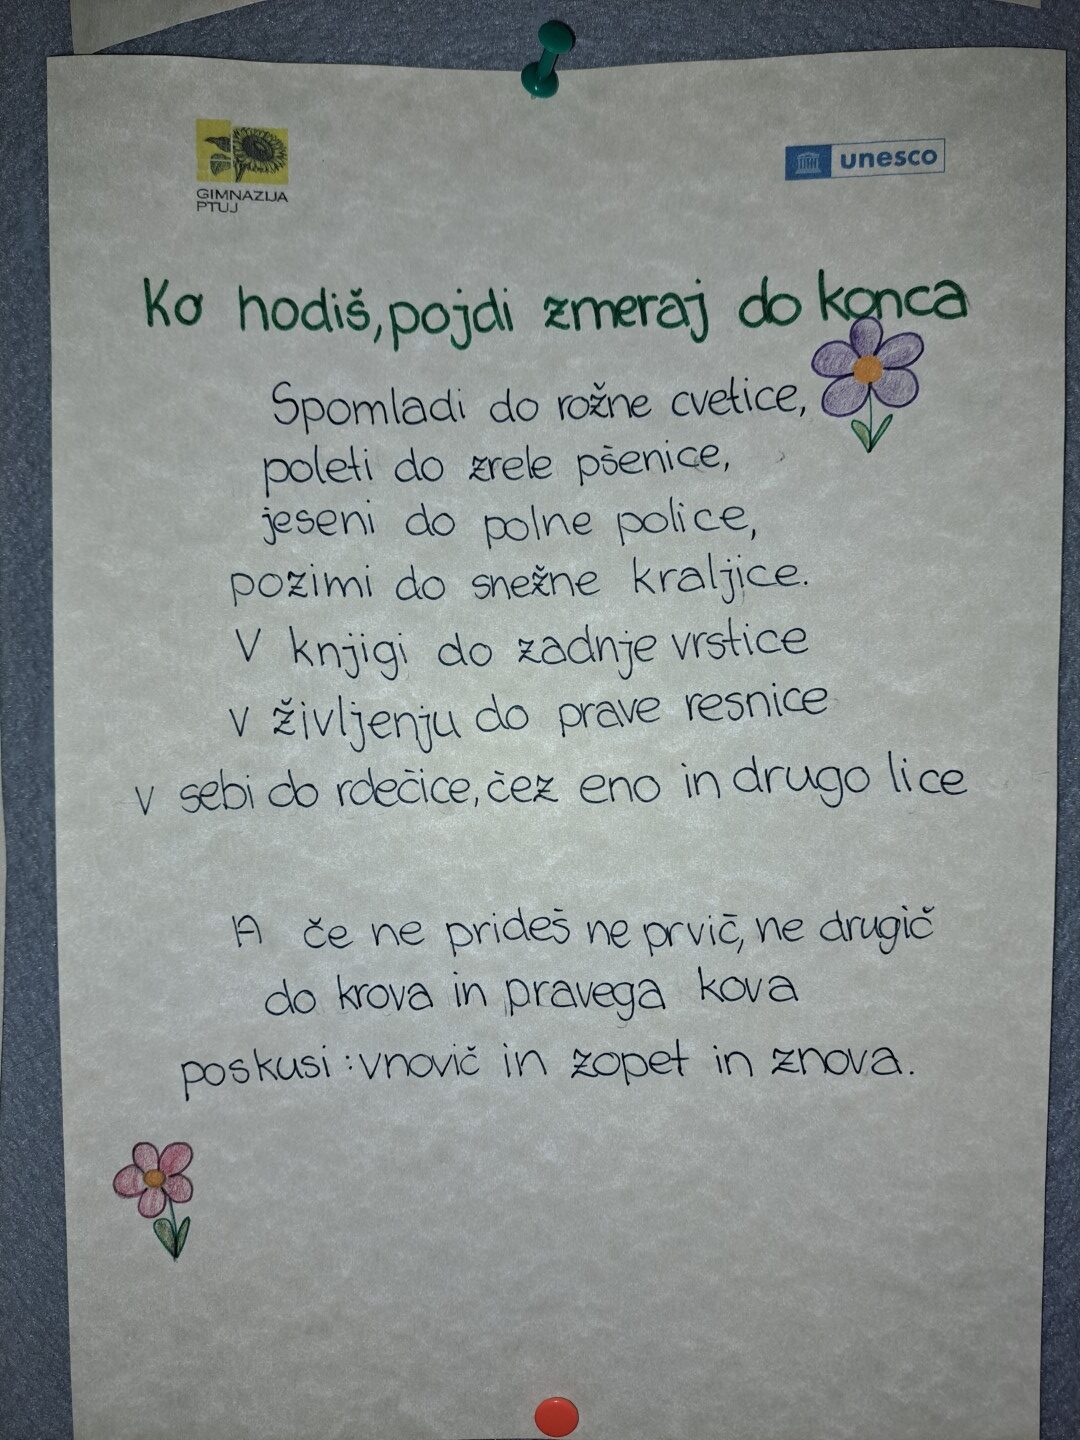 GIMNAZIJA
PTUJ
unesco
Ko hodiš, pojdi zmeraj do konca
Spomladi do rožne cvetice,
poleti do zrele pšenice,
jeseni do polne police,
pozimi do snežne kraljice.
V knjigi do zadnje vrstice
v življenju do prave resnice
v sebi do rdečice, čez eno in drugo lice
A če ne prideš ne prvič, ne drugič
do krova in pravega kova
poskusi: vnovič in zopet in znova.